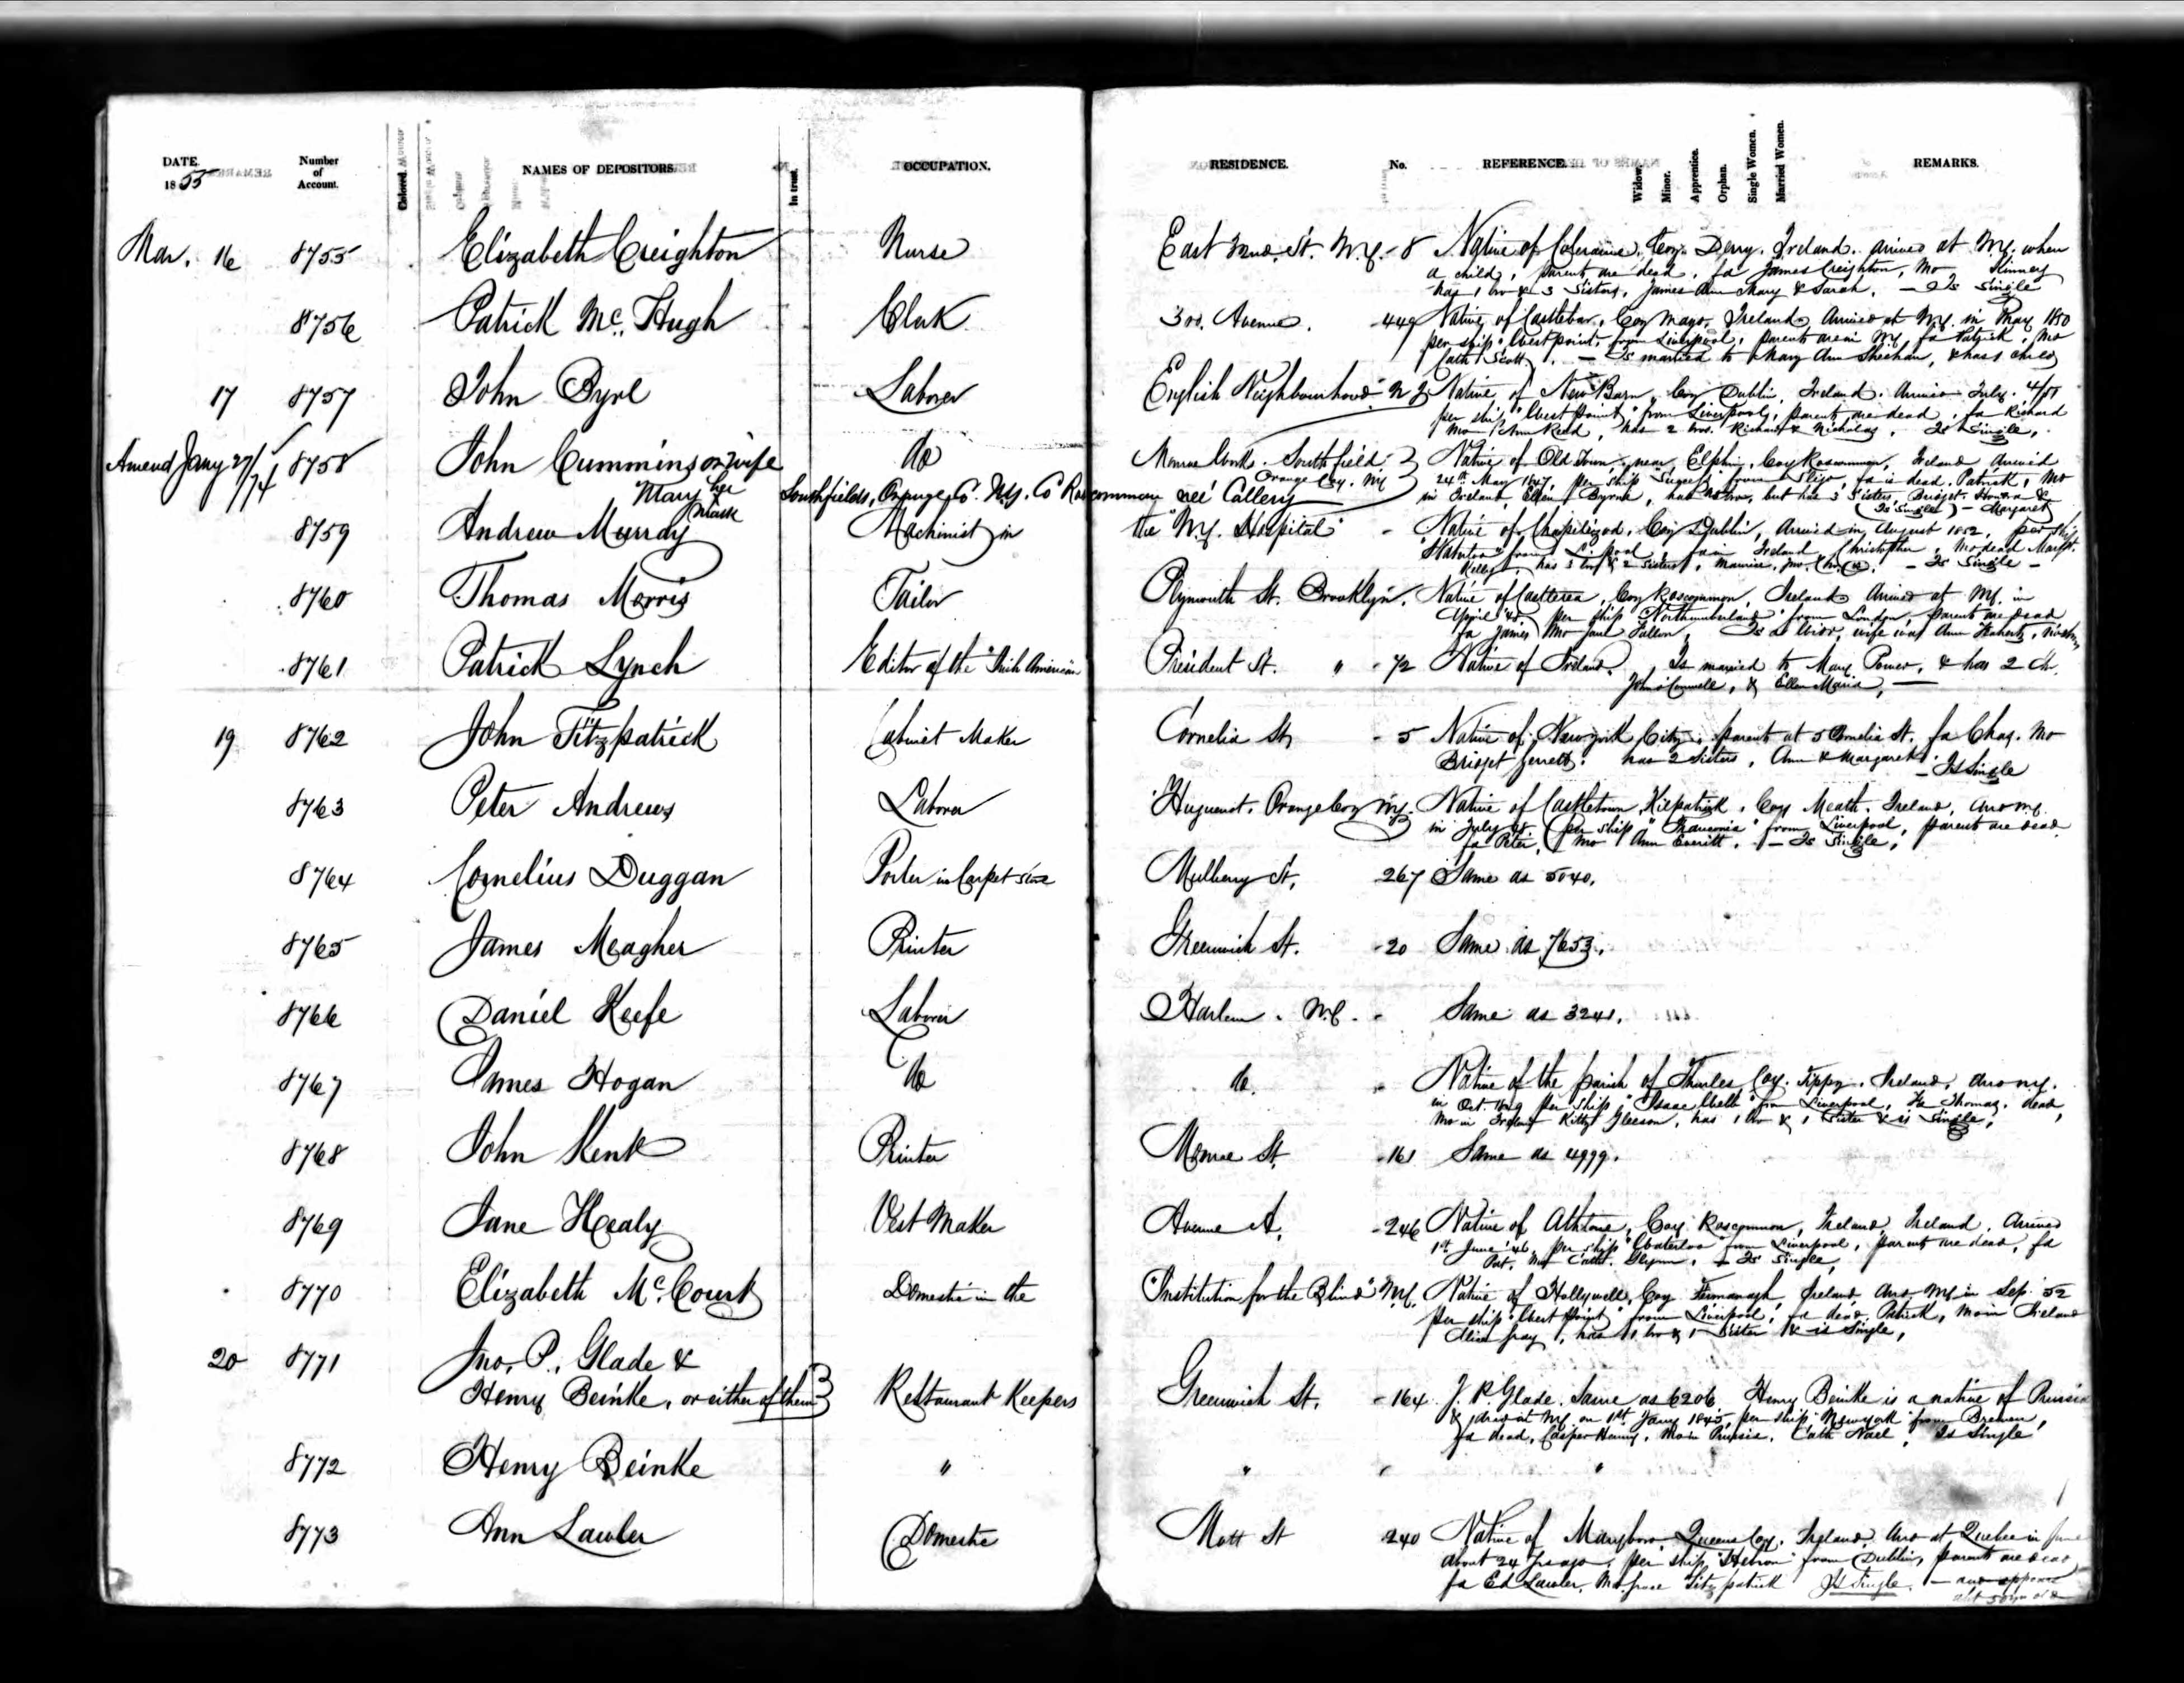 DATE. Number of Account. Colored. NAMES OF DEPOSITORS. In trust. OCCUPATION. RESIDENCE. No. REFERENCE. Widow. Minor. Apprentice. Orphan. Single Women. Married Women. REMARKS.
1855
Mar. 16 8755 Elizabeth Creighton Nurse East 32nd. St. N.Y. - 8 Native of Coleraine, Coy. Derry. Ireland. arrived at N.Y. when
a child, parents are dead, fa James Creighton, Mo Kinney
has 1 bro & 3 Sisters, James Ann Mary & Sarah. - Is Single
8756 Patrick Mc. Hugh Clerk 3rd. Avenue. - 449 Native of Castlebar, Coy Mayo, Ireland. Arrived at N.Y. in May 1850
per ship "Westpoint" from Liverpool, parents are in N.Y. fa Patrick, Mo
Cath Scott, - Is married to Mary Ann Sheehan, & has 1 child
17 8757 John Byrl Laborer English Neighbourhood N J Native of New Barn, Coy Dublin, Ireland. Arrived July 4/51
per ship "West Point" from Liverpool, parents are dead, fa Richard
Mo Ann Read, has 2 bros. Richard & Nicholas. Is Single,
Amend Jany 27/74 8758 John Cummins or wife do Monroe Works. Southfield. Native of Old Town, near Elphin, Coy Roscommon, Ireland Arrived
Orange Coy. NY 24th May 1847, per ship from Sligo, fa is dead, Patrick, Mo
Mary her mark Southfields, Orange Co. N.Y. Co Roscommon neé Callery in Ireland, Ellen Byrne, has no bro, but has 3 Sisters, Bridget. Honora &
(Is Single) - Margaret
8759 Andrew Murray Machinist in the "N.Y. Hospital" - Native of Chapelizod, Coy Dublin, Arrived in August 1852, per ship
from Liverpool, fa in Ireland Christopher, Mo dead Margt.
Kelly, has 3 bro & 2 sisters, Maurice, Jno. - Is Single -
8760 Thomas Morris Tailor Plymouth St. Brooklyn. Native of Castlerea, Coy Roscommon, Ireland Arrived at N.Y. in
April per ship "Northumberland" from London, parents are dead
fa James Mo Jane Fallon, Is a Widr, wife was Ann
8761 Patrick Lynch Editor of the "Irish American" President St. " - 72 Native of Ireland. Is married to Mary Power, & has 2 ch.
John O'Connell, & Ellen Maria, -
19 8762 John Fitzpatrick Cabinet Maker Cornelia St, - 5 Native of New York City, parents at 5 Cornelia St. fa Chas. Mo
Bridget has 2 Sisters, Ann & Margaret - Is Single
8763 Peter Andrews Laborer Huguenot, Orange Coy N.Y. Native of Castletown, Kilpatrick, Coy Meath, Ireland, Arr. N.Y.
in July per ship "Franconia" from Liverpool, parents are dead
fa Peter, Mo Ann Everitt. - Is Single,
8764 Cornelius Duggan Porter in Carpet Store Mulberry St, - 267 Same as 5040.
8765 James Meagher Printer Greenwich St. - 20 Same as 7653.
8766 Daniel Keefe Laborer Harlem. N.Y. - Same as 3241.
8767 James Hogan do do. " Native of the parish of Thurles, Coy. Tippy. Ireland. Arr. N.Y.
in Oct. 1849 per ship "Isaac Webb" from Liverpool, Fa Thomas, dead,
Mo in Ireland Kitty Gleeson, has 1 bro & 1 Sister & is Single,
8768 John Kenk Printer Monroe St. - 161 Same as 4999.
8769 Jane Healy Vest Maker Avenue A. - 246 Native of Athlone, Coy Roscommon, Ireland, Ireland. Arrived
1st June '46, per ship "Waterloo" from Liverpool, parents are dead, fa
Pat, Mo Cath. Glynn, - Is Single,
8770 Elizabeth Mc. Court Domestic in the "Institution for the Blind" N.Y. Native of Hollywell, Coy Fermanagh, Ireland Arr. N.Y in Sep. 52
per ship "West Point" from Liverpool, fa dead, Patrick, Mo in Ireland
has 1 bro & 1 Sister & is Single,
20 8771 Jno. P. Glade &
Henry Beinke, or either of them Restaurant Keepers Greenwich St. - 164 J. P. Glade. Same as 6206. Henry Beinke is a native of Prussia
& arrd at N.Y. on 1st Jany 1845, per ship "New York" from Bremen,
fa dead, Casper Henry, Mo in Prussia. Cath Noel, Is Single
8772 Henry Beinke " " " "
8773 Ann Lawler Domestic Mott St 240 Native of Maryboro, Queens Coy. Ireland. Arr at Quebec in June
about 24 yrs ago, per ship "Hebron" from Dublin, parents are dead
fa Ed Lawler, Mo Fitzpatrick Is Single. -